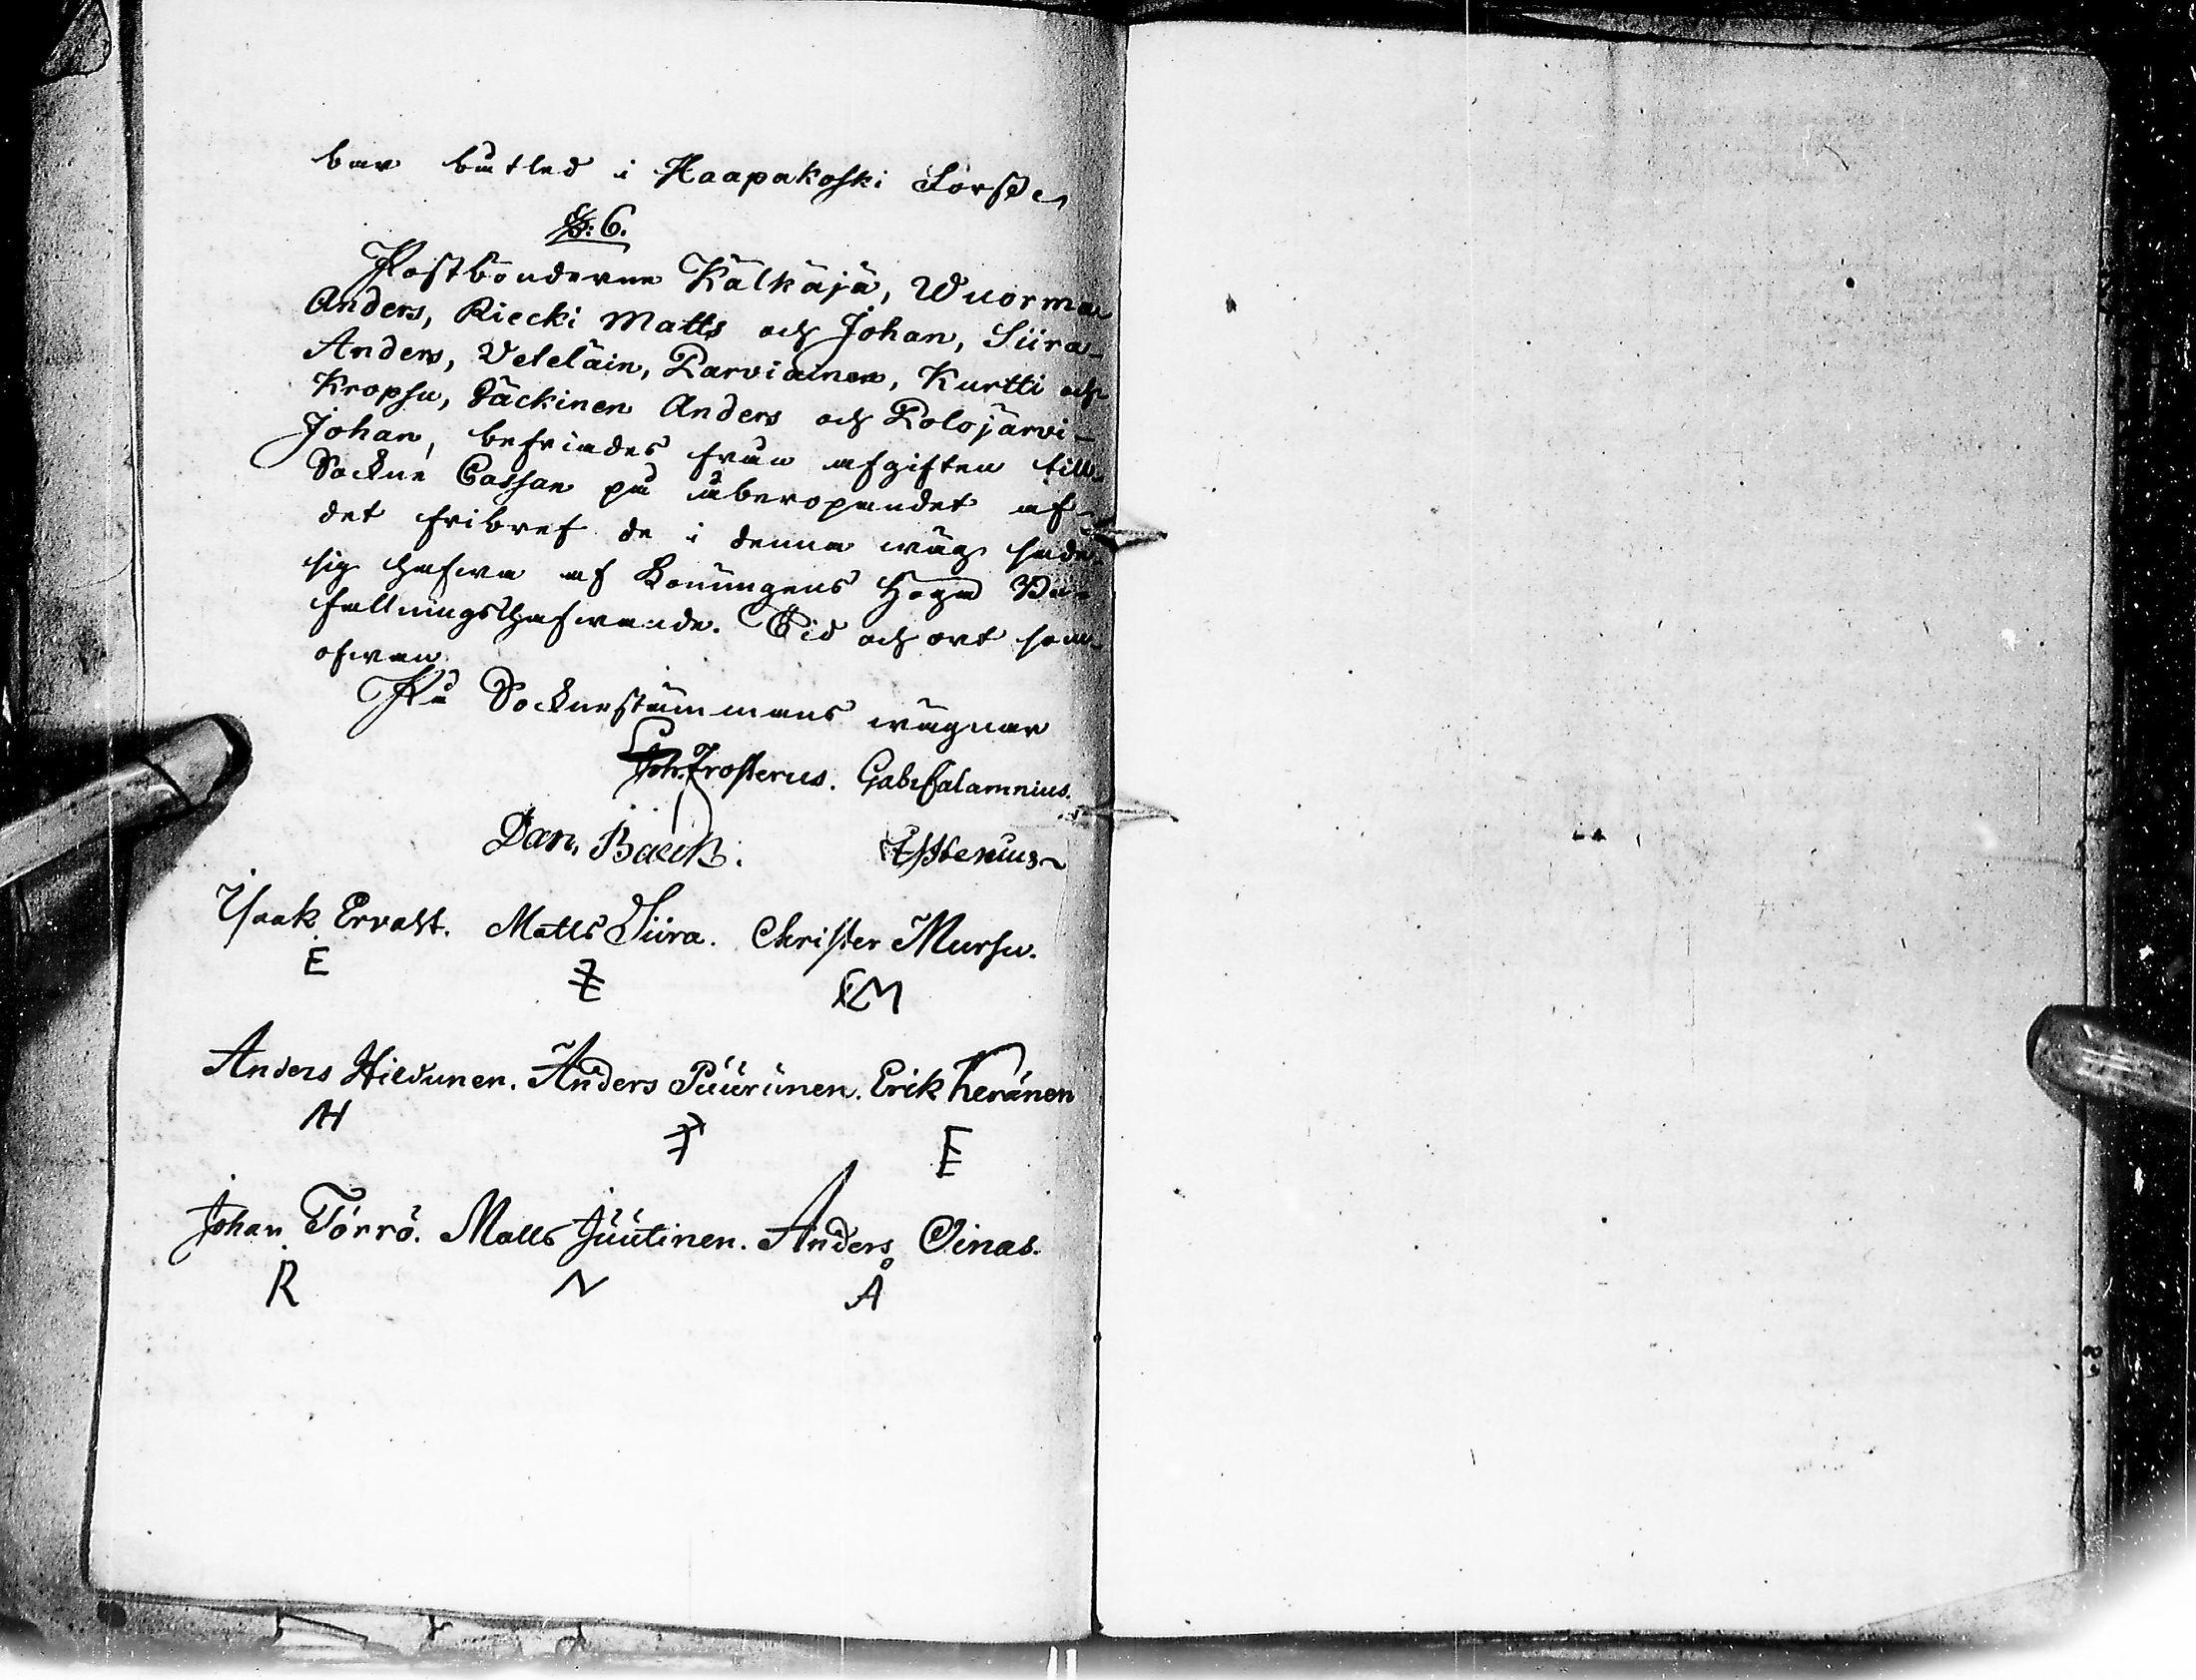 bar båtled i Haapakoski Forsße,
§: 6.
Postbönderne Kälkäjä, Wuorma
Anders, Riecki Matts och Johan, Siira-
Anders, Veteläin, Parviainen, Kurtti och
Kropsu, Säckinen Anders och Polojärvi-
Johan, befriades från afgiften till
Sockne Cassan på åberopandet af
det fribref de i denna wäg sade
sig hafwa af Konungens Högst
fallningshafwande. Tid och ort som
ofwan
På Socknestämmans wägnar
Joh. Frosterus. Gab. Calamnius.
Dan. Baeck.
Isaak Ervast. Matts Siira. Christer Mursu.
E CM
Anders Hildunen. Anders Püürünen. Erik Keränen
AH E
Johan Törrö. Matts Jüütinen. Anders Oinas.
R N Å